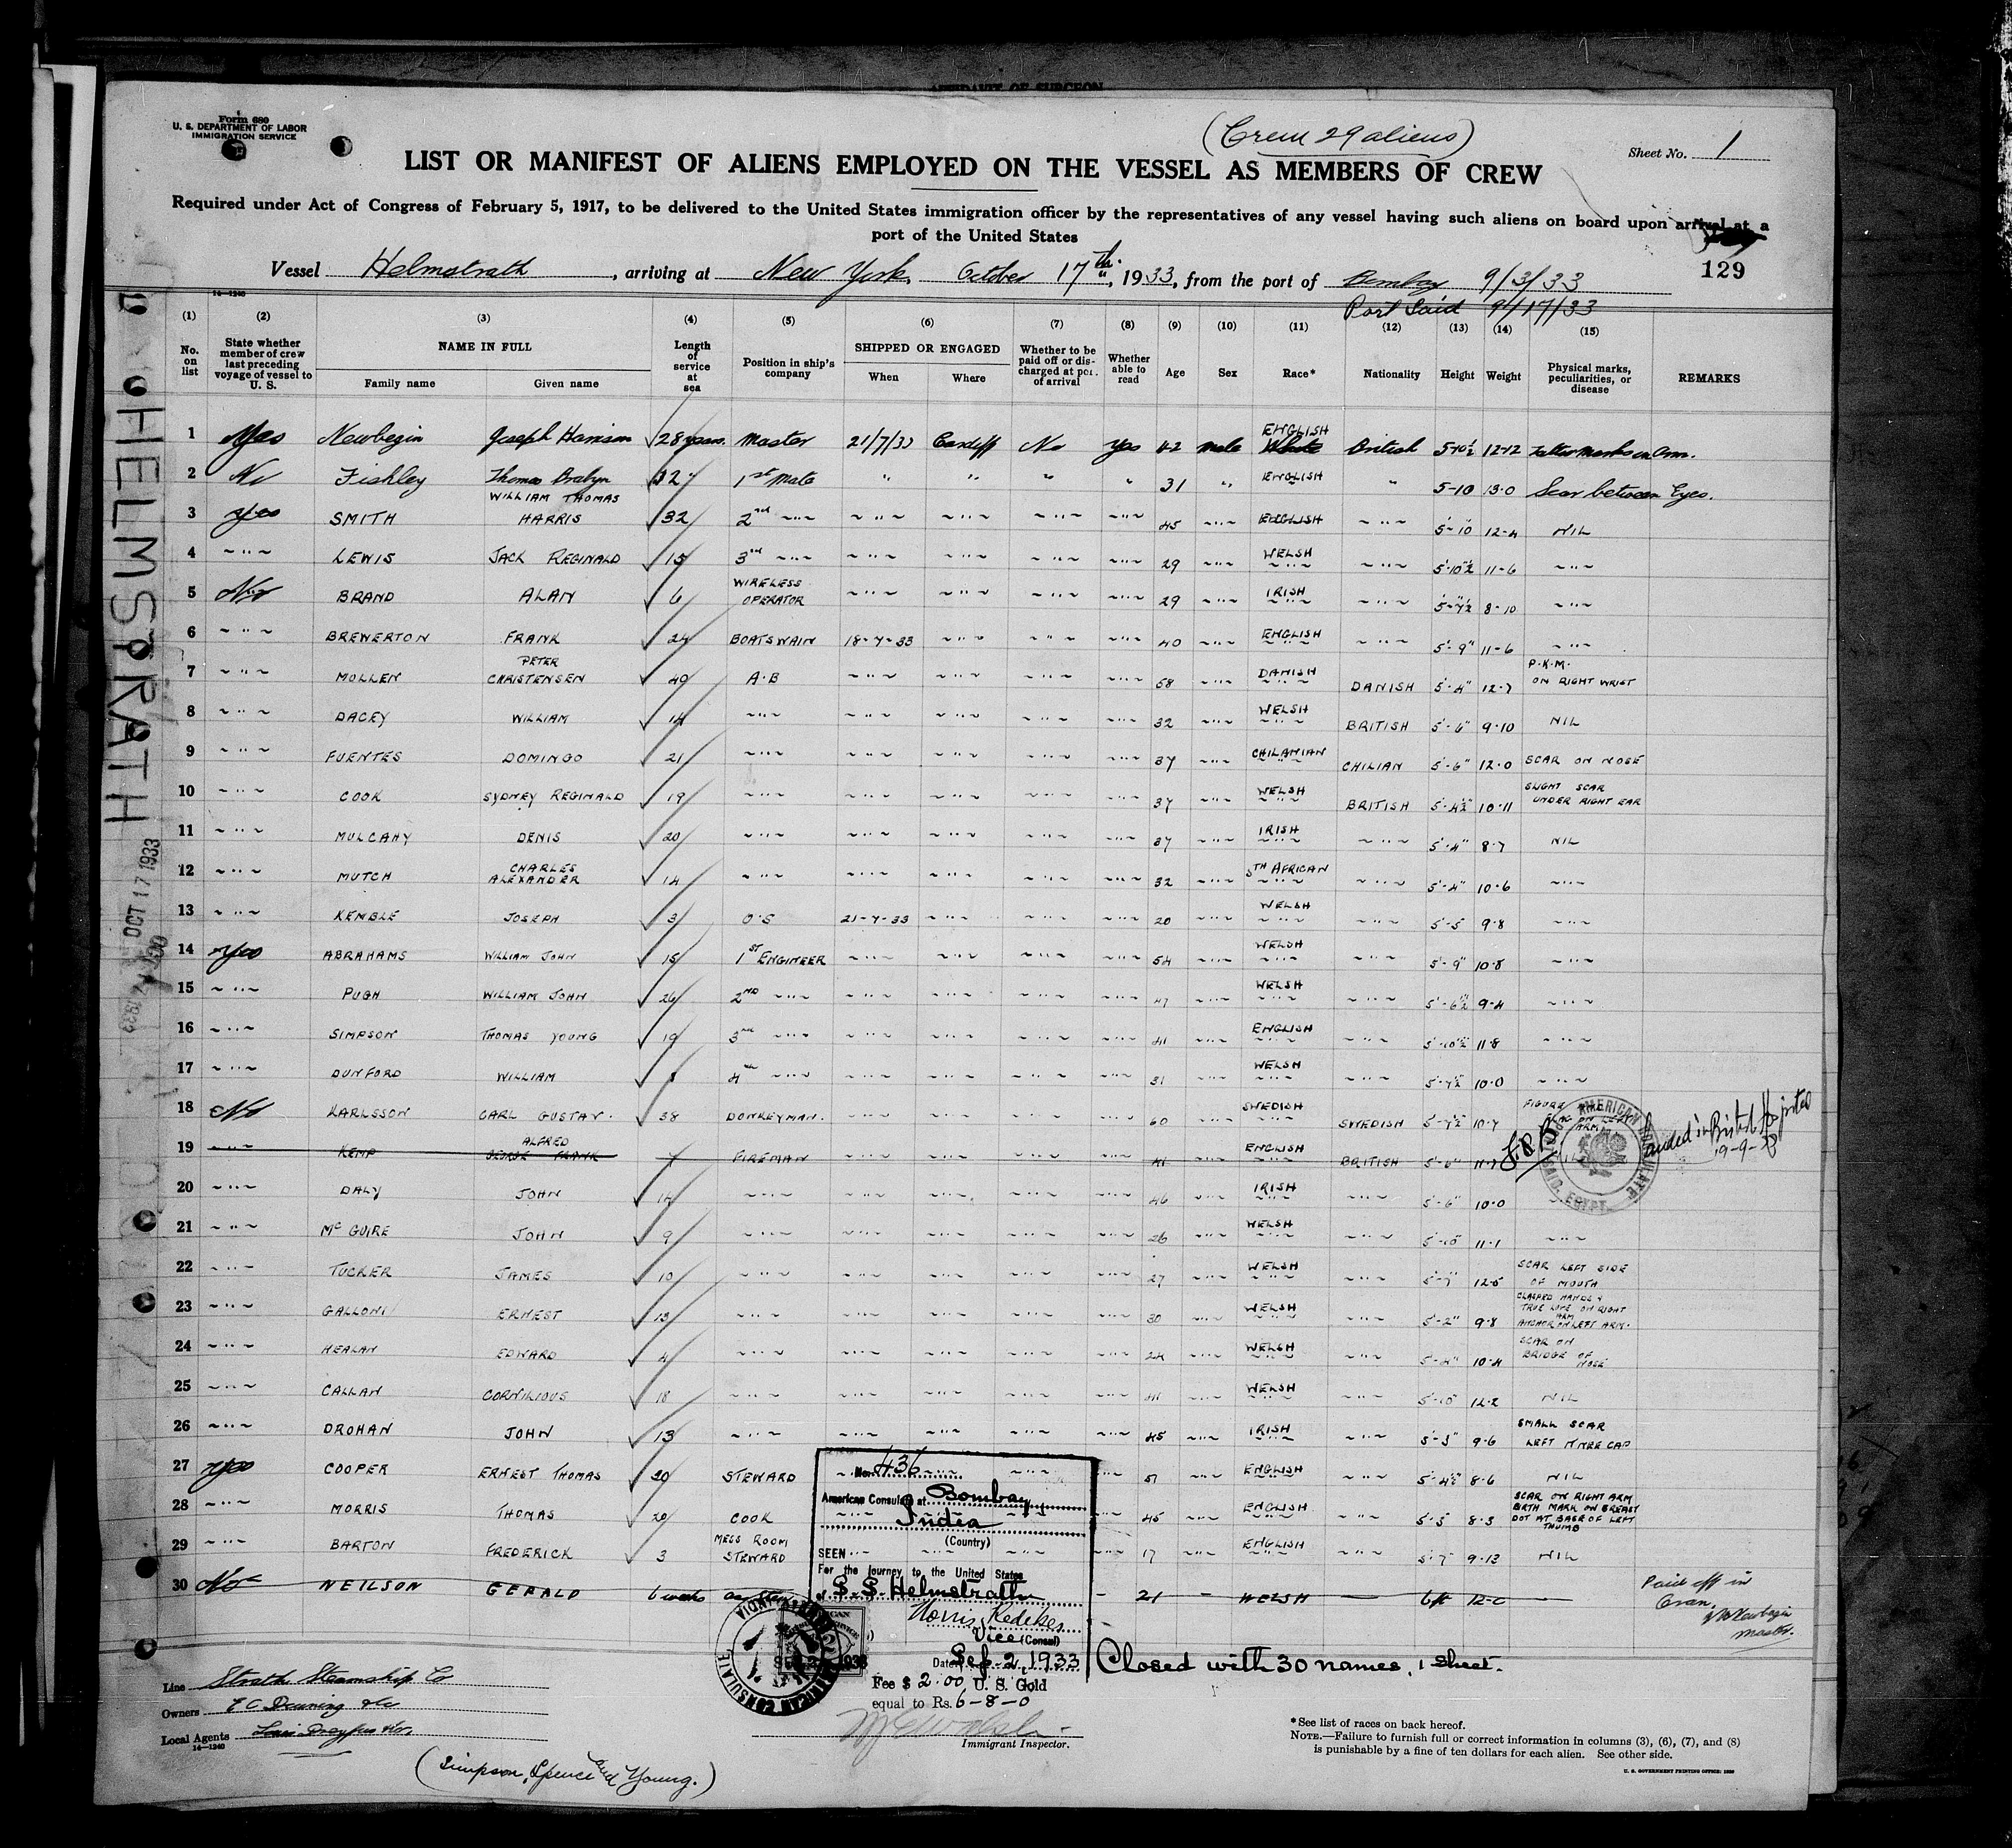 AFFIDAVIT OF SURGEON
Form 680
U. S. DEPARTMENT OF LABOR
IMMIGRATION SERVICE
(Crew 29 aliens)
Sheet No. 1
LIST OR MANIFEST OF ALIENS EMPLOYED ON THE VESSEL AS MEMBERS OF CREW
Required under Act of Congress of February 5, 1917, to be delivered to the United States immigration officer by the representatives of any vessel having such aliens on board upon arrival at a
port of the United States
129
Vessel Helmstrath, arriving at New York, October 17th, 1933, from the port of Bombay 9/3/33
Port Said 9/17/33
14-1240
(1) (2) (3) (4) (5) (6) (7) (8) (9) (10) (11) (12) (13) (14) (15)
No. on list
State whether member of crew last preceding voyage of vessel to U. S.
NAME IN FULL
Family name Given name
Length of service at sea
Position in ship's company
SHIPPED OR ENGAGED
When Where
Whether to be paid off or discharged at port of arrival
Whether able to read
Age Sex Race* Nationality Height Weight
Physical marks, peculiarities, or disease
REMARKS
1 Yes Newbegin Joseph Harrison 28 years. Master 21/7/33 Cardiff No Yes 42 male ENGLISH White British 5-10½ 12-12 Tattoo Marks on Arm.
2 No Fishley Thomas Brabyn 12 " 1st Mate " " " " 31 " ENGLISH " 5-10 13-0 Scar between Eyes.
3 Yes SMITH WILLIAM THOMAS HARRIS 32 2nd ~"~ ~"~ ~"~ ~"~ ~"~ 45 ~"~ ENGLISH ~"~ 5-10 12-4 NIL
4 ~"~ LEWIS JACK REGINALD 15 3rd ~"~ ~"~ ~"~ ~"~ ~"~ 29 ~"~ WELSH ~"~ 5-10½ 11-6 ~"~
5 No BRAND ALAN 6 WIRELESS OPERATOR ~"~ ~"~ ~"~ ~"~ 29 ~"~ IRISH ~"~ 5-7½ 8-10 ~"~
6 ~"~ BREWERTON FRANK 24 BOATSWAIN 18-7-33 ~"~ ~"~ ~"~ 40 ~"~ ENGLISH ~"~ 5'-9" 11-6 ~"~
7 ~"~ MOLLEN PETER CHRISTENSEN 40 A.B ~"~ ~"~ ~"~ ~"~ 58 ~"~ DANISH DANISH 5'-4" 12-7 P.K.M. ON RIGHT WRIST
8 ~"~ DACEY WILLIAM 14 ~"~ ~"~ ~"~ ~"~ ~"~ 32 ~"~ WELSH BRITISH 5'-6" 9-10 NIL
9 ~"~ FUENTES DOMINGO 21 ~"~ ~"~ ~"~ ~"~ ~"~ 37 ~"~ CHILANIAN CHILIAN 5'-6" 12-0 SCAR ON NOSE
10 ~"~ COOK SYDNEY REGINALD 19 ~"~ ~"~ ~"~ ~"~ ~"~ 37 ~"~ WELSH BRITISH 5'-4½" 10-11 SLIGHT SCAR UNDER RIGHT EAR
11 ~"~ MULCAHY DENIS 20 ~"~ ~"~ ~"~ ~"~ ~"~ 37 ~"~ IRISH ~"~ 5'-4" 8-7 NIL
12 ~"~ MUTCH CHARLES ALEXANDER 14 ~"~ ~"~ ~"~ ~"~ ~"~ 32 ~"~ STH AFRICAN ~"~ 5'-4" 10-6 ~"~
13 ~"~ KEMBLE JOSEPH 3 O.S 21-7-33 ~"~ ~"~ ~"~ 20 ~"~ WELSH ~"~ 5'-5 9-8 ~"~
14 Yes ABRAHAMS WILLIAM JOHN 15 1ST ENGINEER ~"~ ~"~ ~"~ ~"~ 54 ~"~ WELSH ~"~ 5'-9" 10-8 ~"~
15 ~"~ PUGH WILLIAM JOHN 26 2ND ~"~ ~"~ ~"~ ~"~ ~"~ 47 ~"~ WELSH ~"~ 5'-6½" 9-4 ~"~
16 ~"~ SIMPSON THOMAS YOUNG 19 3rd ~"~ ~"~ ~"~ ~"~ ~"~ 41 ~"~ ENGLISH ~"~ 5'-10½" 11-8 ~"~
17 ~"~ DUNFORD WILLIAM 4th ~"~ ~"~ ~"~ ~"~ ~"~ 31 ~"~ WELSH ~"~ 5'-7½ 10-0 ~"~
18 No KARLSSON CARL GUSTAV. 38 DONKEYMAN. ~"~ ~"~ ~"~ ~"~ 60 ~"~ SWEDISH SWEDISH 5'-7½ 10-7 FIGURE ON LEFT ARM
19 ~"~ KEMP ALFRED GEORGE FRANK 7 FIREMAN ~"~ ~"~ ~"~ ~"~ 41 ~"~ ENGLISH BRITISH 5'-6" 11-7 Landed in British Hospital 19-9-33
20 ~"~ DALY JOHN 14 ~"~ ~"~ ~"~ ~"~ ~"~ 46 ~"~ IRISH ~"~ 5'-6" 10-0
21 ~"~ Mc GUIRE JOHN 9 ~"~ ~"~ ~"~ ~"~ ~"~ 26 ~"~ WELSH ~"~ 5'-10 11-1 ~"~
22 ~"~ TUCKER JAMES 10 ~"~ ~"~ ~"~ ~"~ ~"~ 27 ~"~ WELSH ~"~ 5'-7" 12-5 SCAR LEFT SIDE OF MOUTH
23 ~"~ GALLONI ERNEST 13 ~"~ ~"~ ~"~ ~"~ ~"~ 30 ~"~ WELSH ~"~ 5'-2" 9-8 CLASPED HANDS & TRUE LOVE ON RIGHT ARM ANCHOR ON LEFT ARM.
24 ~"~ HEALAN EDWARD 4 ~"~ ~"~ ~"~ ~"~ ~"~ 24 ~"~ WELSH ~"~ 5'-4" 10-4 SCAR ON BRIDGE OF NOSE
25 ~"~ CALLAN CORNILIOUS 18 ~"~ ~"~ ~"~ ~"~ ~"~ 41 ~"~ WELSH ~"~ 5'-10 12-2 NIL
26 ~"~ DROHAN JOHN 13 ~"~ ~"~ ~"~ ~"~ ~"~ 45 ~"~ IRISH ~"~ 5'-3" 9-6 SMALL SCAR LEFT KNEE CAP
27 Yes COOPER ERNEST THOMAS 30 STEWARD ~"~ ~"~ ~"~ ~"~ 51 ~"~ ENGLISH ~"~ 5'-4½" 8-6 NIL
28 ~"~ MORRIS THOMAS 20 COOK ~"~ ~"~ ~"~ ~"~ 45 ~"~ ENGLISH ~"~ 5'-5" 8-3 SCAR ON RIGHT ARM BIRTH MARK ON BREAST DOT AT BASE OF LEFT THUMB
29 ~"~ BARTON FREDERICK 3 MESS ROOM STEWARD ~"~ ~"~ ~"~ 17 ~"~ ENGLISH ~"~ 5'-7" 9-13 NIL
30 No NEILSON GERALD 6 weeks 21 WELSH 6 ft 12-0 Paid off in Oran. Newbegin Master.
AMERICAN CONSULATE
PORT SAID, EGYPT.
HELMSTRATH
OCT 17 1933
No. 436
American Consulate at Bombay
India
(Country)
SEEN
For the Journey to the United States
of S.S. Helmstrath
Vice (Consul)
Date Sep. 2, 1933
Fee $ 2.00 U. S. Gold
equal to Rs. 6-8-0
AMERICAN CONSULATE
Closed with 30 names, 1 sheet.
Immigrant Inspector.
Line Strath Steamship Co
Owners E C Downing & Co
Local Agents Louis Dreyfus & Co.
14-1240
(Simpson, Spence and Young.)
*See list of races on back hereof.
NOTE.—Failure to furnish full or correct information in columns (3), (6), (7), and (8)
is punishable by a fine of ten dollars for each alien. See other side.
U. S. GOVERNMENT PRINTING OFFICE: 1929